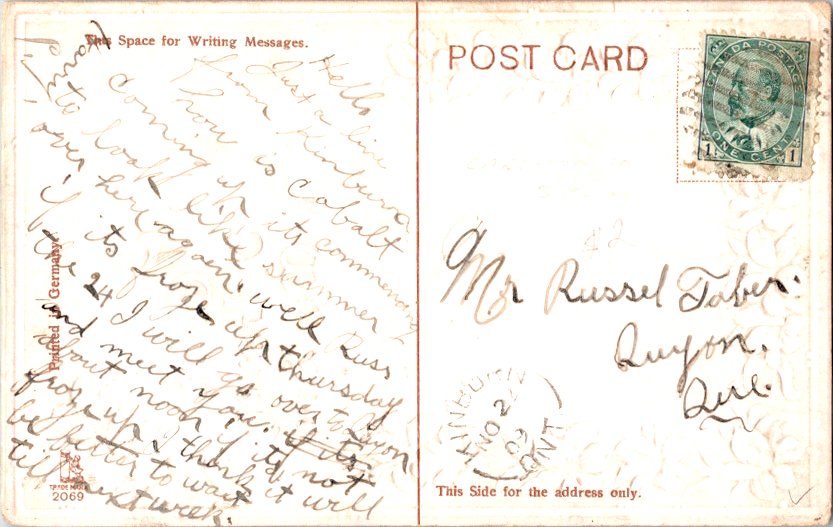 This Space for Writing Messages.
Hello
Just a line
from Kinburn
how is Cobalt
Coming up its commencing
to look like summer
over here again. well Russ
if its froze up thursday
the 24 I will go over to Quyon.
and meet you. if its
about noon if its not
froze up I think it will
be better to wait
till next week.
Printed in Germany.
TRADE MARK
2069
POST CARD
CANADA POSTAGE
ONE CENT
1 1
Mr Russel Taber.
Quyon.
Que.
KINBURN
NO 2
09
ONT
This Side for the address only.